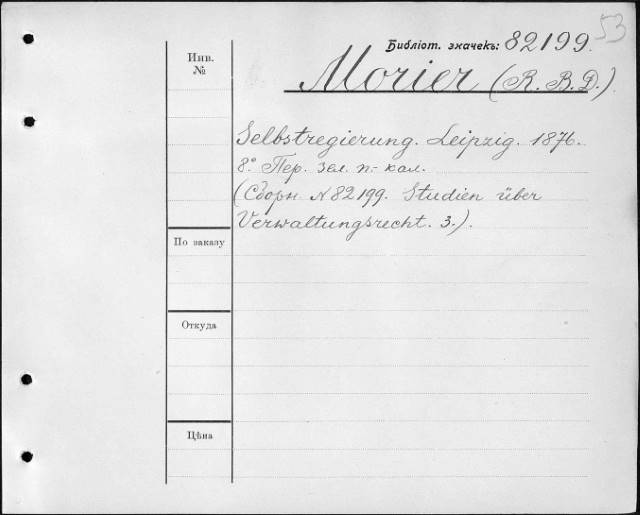 53
Библіот. значекъ: 82199.
Инв.
№
Morier (R. B. D.)
Selbstregierung. Leipzig. 1876.
8° Пер. зел. п.- кал.
(Сборн. № 82199. Studien über
Verwaltungsrecht. 3.).
По заказу
Откуда
Цѣна